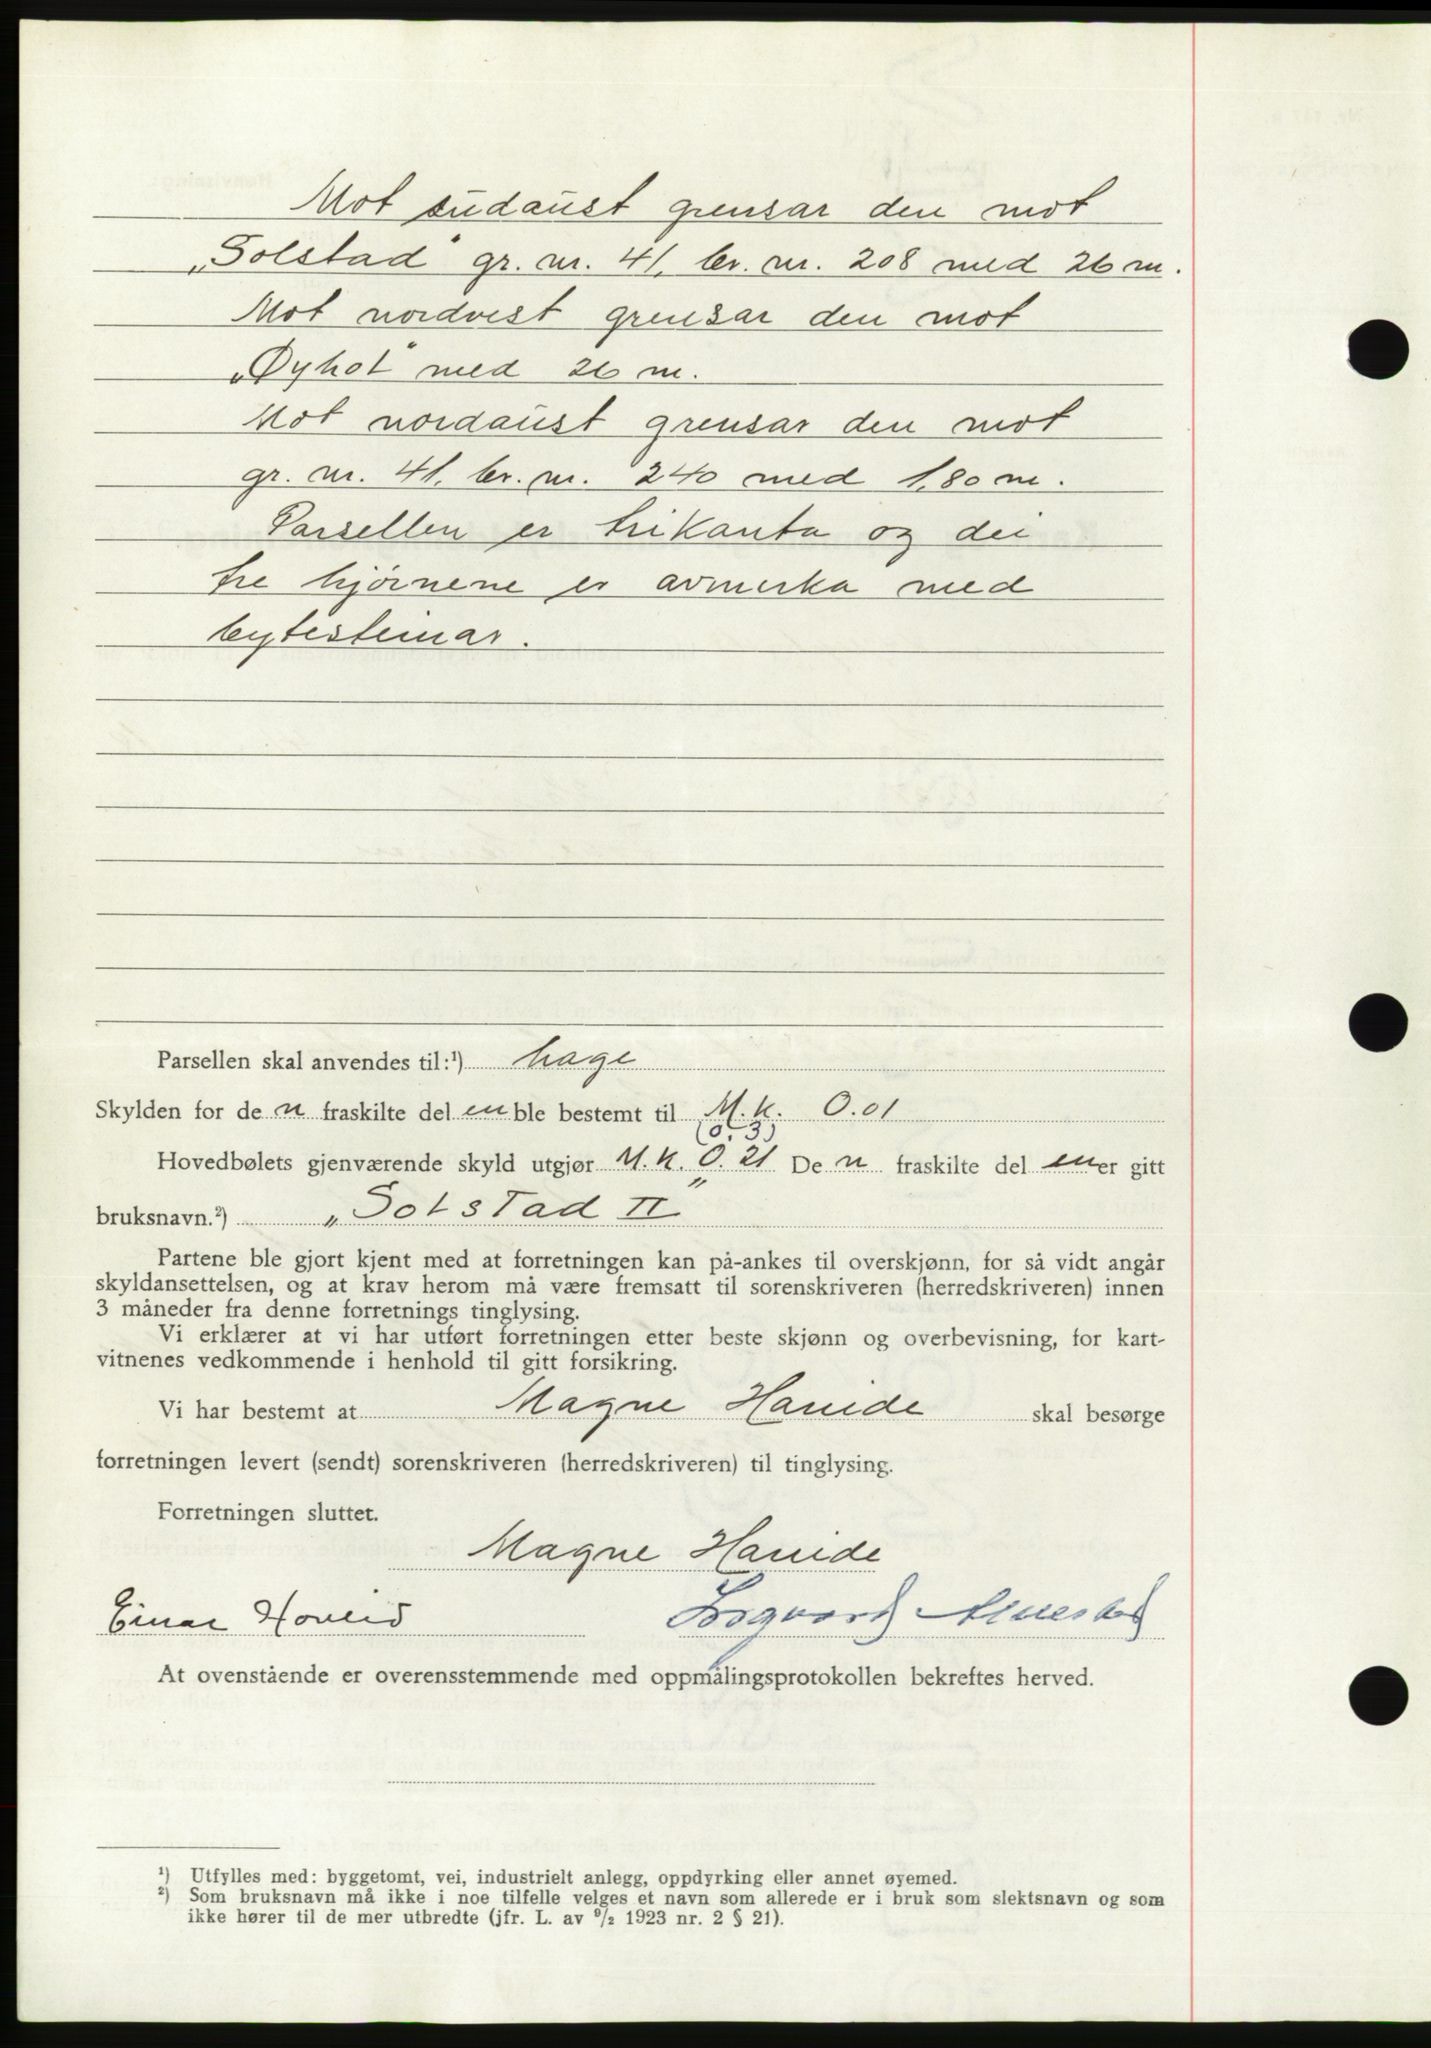 Mot sudaust grensar den mot
„Solstad" gr. nr. 41, br. nr. 208 med 26 m.
Mot nordvest grensar den mot
„Øyhol" med 26 m.
Mot nordaust grensar den mot
gr. nr. 41, br. nr. 240 med 1,80 m.
Parsellen er trikanta og dei
tre hjörnene er avmerka med
bytesteinar.
Parsellen skal anvendes til:¹) hage
Skylden for de n fraskilte del en ble bestemt til M.k. 0.01
(0.3)
Hovedbølets gjenværende skyld utgjør M.k. 0.21 De n fraskilte del en er gitt
bruksnavn.²) „Solstad II"
Partene ble gjort kjent med at forretningen kan på-ankes til overskjønn, for så vidt angår
skyldansettelsen, og at krav herom må være fremsatt til sorenskriveren (herredskriveren) innen
3 måneder fra denne forretnings tinglysing.
Vi erklærer at vi har utført forretningen etter beste skjønn og overbevisning, for kart-
vitnenes vedkommende i henhold til gitt forsikring.
Vi har bestemt at Magne Hareide skal besørge
forretningen levert (sendt) sorenskriveren (herredskriveren) til tinglysing.
Forretningen sluttet.
Magne Hareide
Einar Hovlid
At ovenstående er overensstemmende med oppmålingsprotokollen bekreftes herved.
¹) Utfylles med: byggetomt, vei, industrielt anlegg, oppdyrking eller annet øyemed.
²) Som bruksnavn må ikke i noe tilfelle velges et navn som allerede er i bruk som slektsnavn og som
ikke hører til de mer utbredte (jfr. L. av ⁹/₂ 1923 nr. 2 § 21).